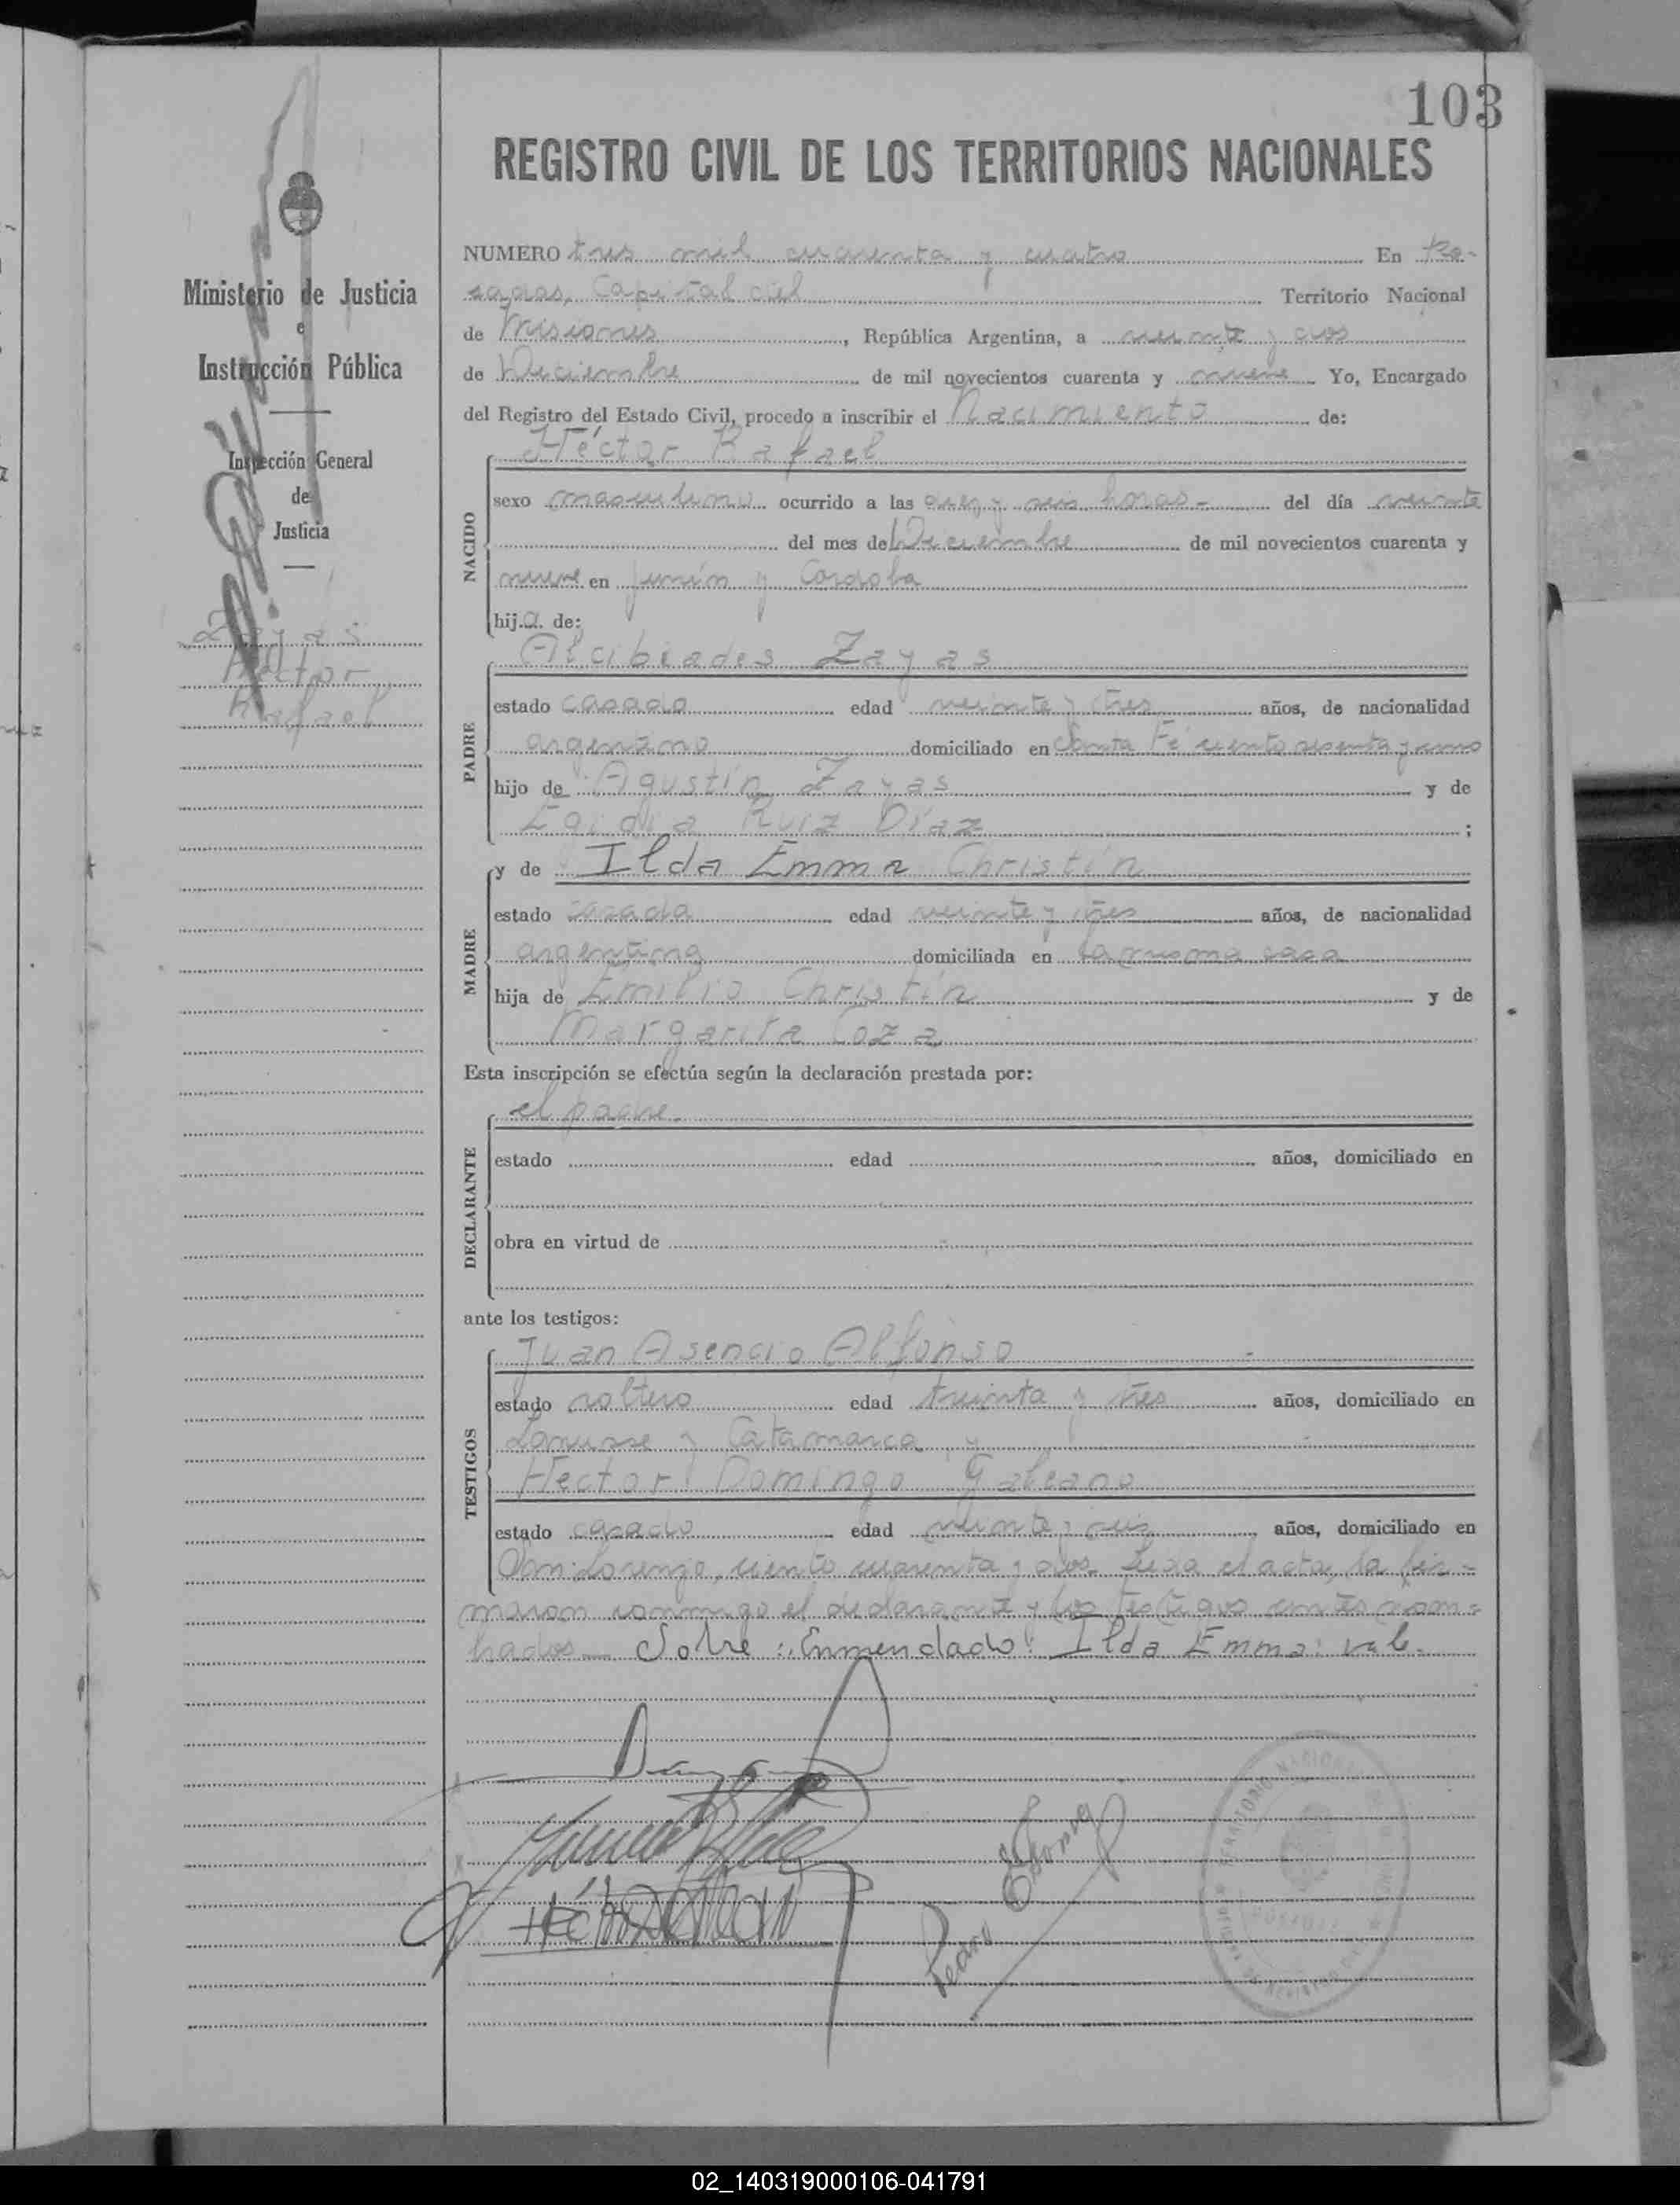 103
REGISTRO CIVIL DE LOS TERRITORIOS NACIONALES
Ministerio de Justicia
e
Instrucción Pública
Inspección General
de
Justicia
Zayas
Héctor
Rafael
NUMERO tres mil cuarenta y cuatro En Po-
sadas, Capital del Territorio Nacional
de Misiones, República Argentina, a veinte y dos
de Diciembre de mil novecientos cuarenta y nueve Yo, Encargado
del Registro del Estado Civil, procedo a inscribir el Nacimiento de:
Héctor Rafael
NACIDO
sexo masculino ocurrido a las diez y seis horas - del día veinte
del mes de Diciembre de mil novecientos cuarenta y
nueve en Junín y Córdoba
hij.o. de:
Alcibiades Zayas
PADRE
estado casado edad veinte y tres años, de nacionalidad
argentino domiciliado en Santa Fé ciento sesenta y uno
hijo de Agustín Zayas y de
Egidia Ruiz Díaz ;
y de Ilda Emma Christín
MADRE
estado casada edad veinte y tres años, de nacionalidad
argentina domiciliada en la misma casa
hija de Emilio Christín y de
Margarita Coza
Esta inscripción se efectúa según la declaración prestada por:
el padre.
DECLARANTE
estado edad años, domiciliado en
obra en virtud de
ante los testigos:
Juan Asencio Alfonso
TESTIGOS
estado soltero edad treinta y tres años, domiciliado en
Lanusse y Catamarca y
Héctor Domingo Galeano
estado casado edad veinte y seis años, domiciliado en
San Lorenzo, ciento cuarenta y dos. Leída el acta, la fir-
maron conmigo el declarante y los testigos antes nom-
brados - Sobre: Enmendado: Ilda Emma: vale.
TERRITORIO NACIONAL
POSADAS
02_140319000106-041791